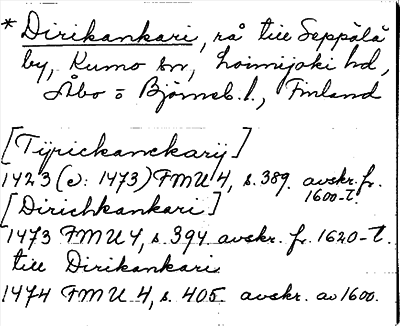 * Dirikankari, rå till Seppälä
by, Kumo sn, Loimijoki hd,
Åbo o Björneb. l., Finland
[Tyrickanckarij]
1423 (o: 1473) FMU 4, s. 389. avskr. fr.
1600-t.
[Dirichkankari]
1473 FMU 4, s. 394 avskr. fr. 1620-t.
till Dirikankari
1474 FMU 4, s. 405 avskr. av 1600.